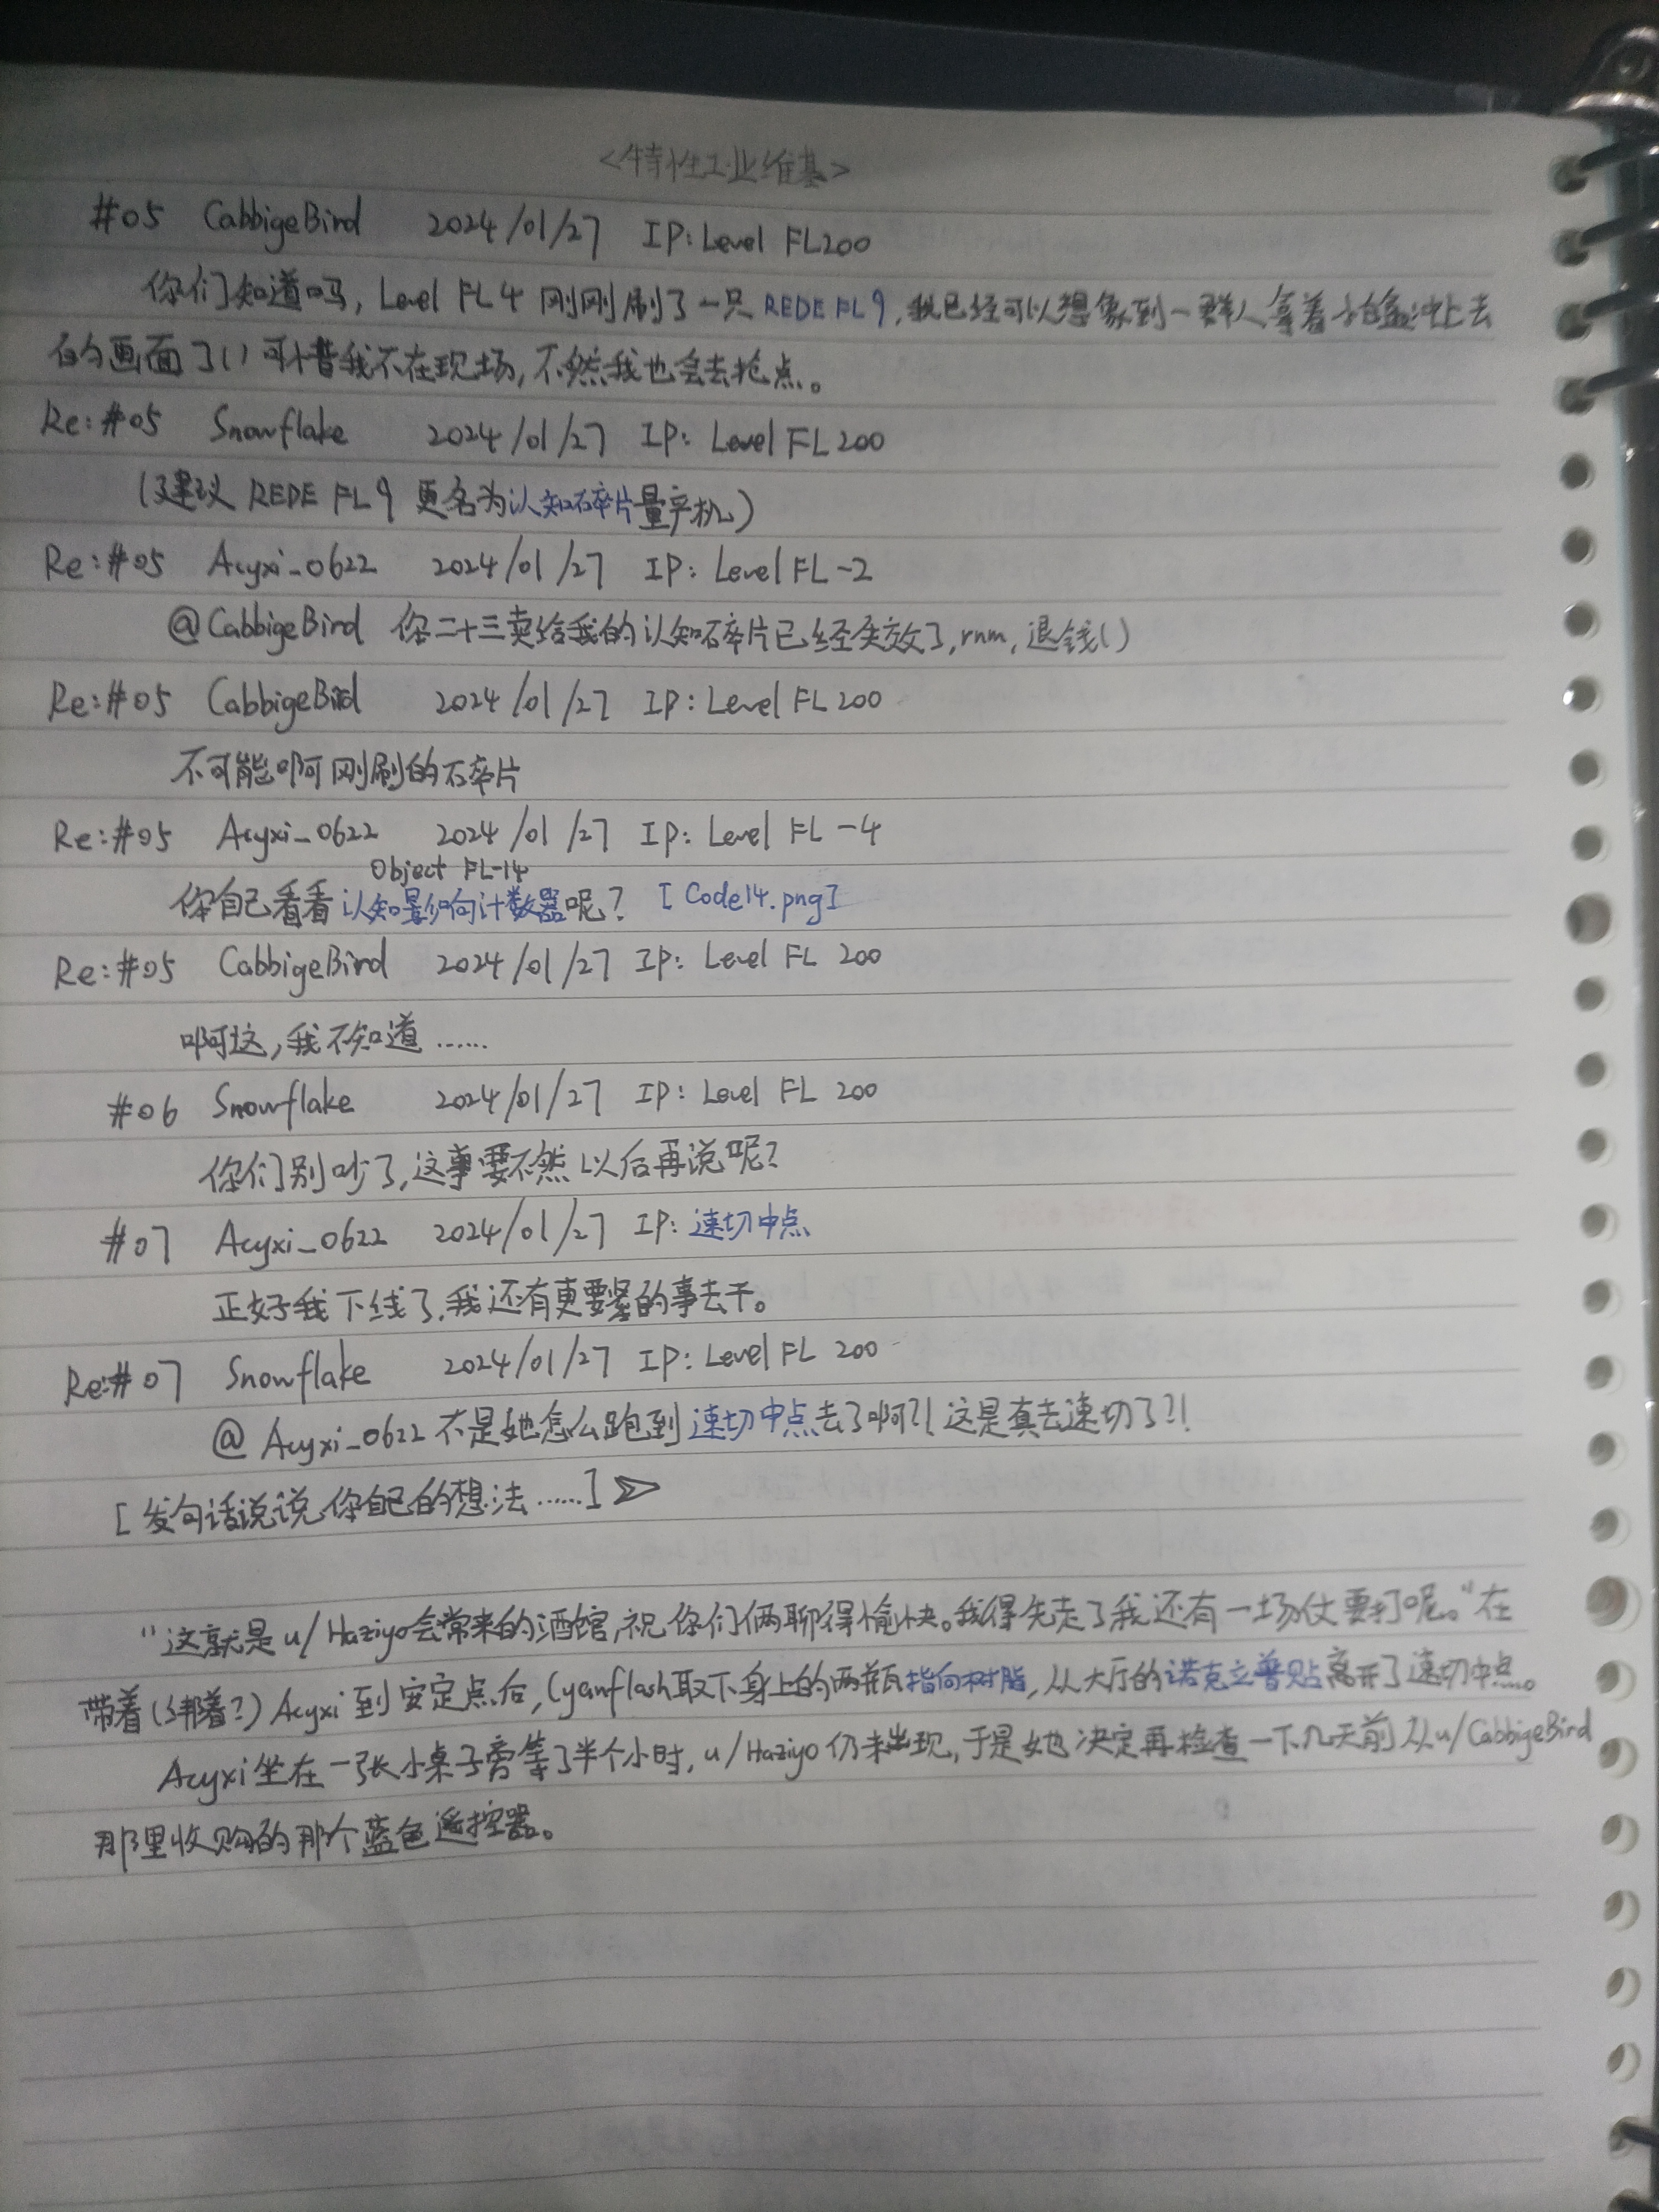 <特性工业维基>
#05 CabbigeBird 2024/01/27 IP:Level FL200
你们知道吗,Level FL 4 刚刚刷了一只 REDE FL 9,我已经可以想象到一群人拿着冲上去
的画面了()可惜我不在现场,不然我也会去抢点。
Re:#05 Snowflake 2024/01/27 IP: Level FL 200
(建议 REDE FL 9 更名为认知碎片量产机)
Re:#05 Acyxi_0622 2024/01/27 IP: Level FL-2
@CabbigeBird 你二十三卖给我的认知碎片已经失效了,rnm,退钱()
Re:#05 CabbigeBird 2024/01/27 IP: Level FL 200
不可能啊刚刷的碎片
Re:#05 Acyxi_0622 2024/01/27 IP: Level FL -4
Object FL-14
你自己看看认知影响计数器呢? [Code14.png]
Re:#05 CabbigeBird 2024/01/27 IP: Level FL 200
啊这,我不知道……
#06 Snowflake 2024/01/27 IP: Level FL 200
你们别吵了,这事要不然以后再说呢?
#07 Acyxi_0622 2024/01/27 IP: 速切中点
正好我下线了,我还有更要紧的事去干。
Re:#07 Snowflake 2024/01/27 IP: Level FL 200
@ Acyxi_0622 不是她怎么跑到速切中点去了啊?! 这是真去速切了?!
[发句话说说你自己的想法……]
"这就是u/Haziyo会常来的酒馆,祝你们俩聊得愉快。我得先走了我还有一场仗要打呢。"在
带着(绑着?)Acyxi到安定点后,Cyanflash取下身上的两瓶指向树脂,从大厅的诺克立普贴离开了速切中点。
Acyxi坐在一张小桌子旁等了半个小时,u/Haziyo仍未出现,于是她决定再检查一下几天前从u/CabbigeBird
那里收购的那个蓝色遥控器。